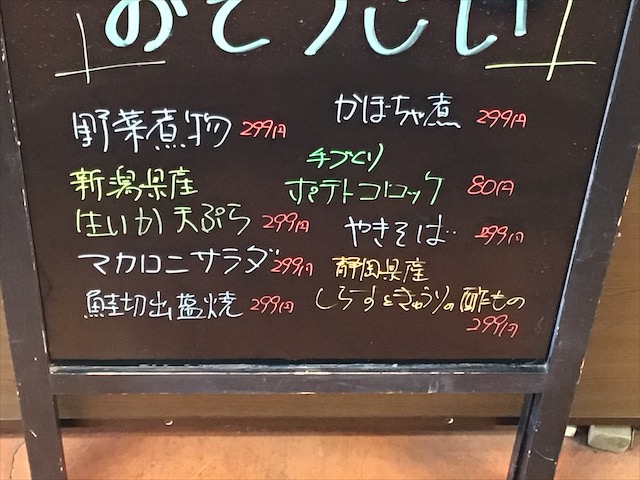 おそうざい
野菜煮物 299円
新潟県産
生いか天ぷら 299円
マカロニサラダ 299円
鮭切出塩焼 299円
かぼちゃ煮 299円
手づくり
ポテトコロッケ 80円
やきそば 299円
静岡県産
しらすときゅうりの酢もの
299円